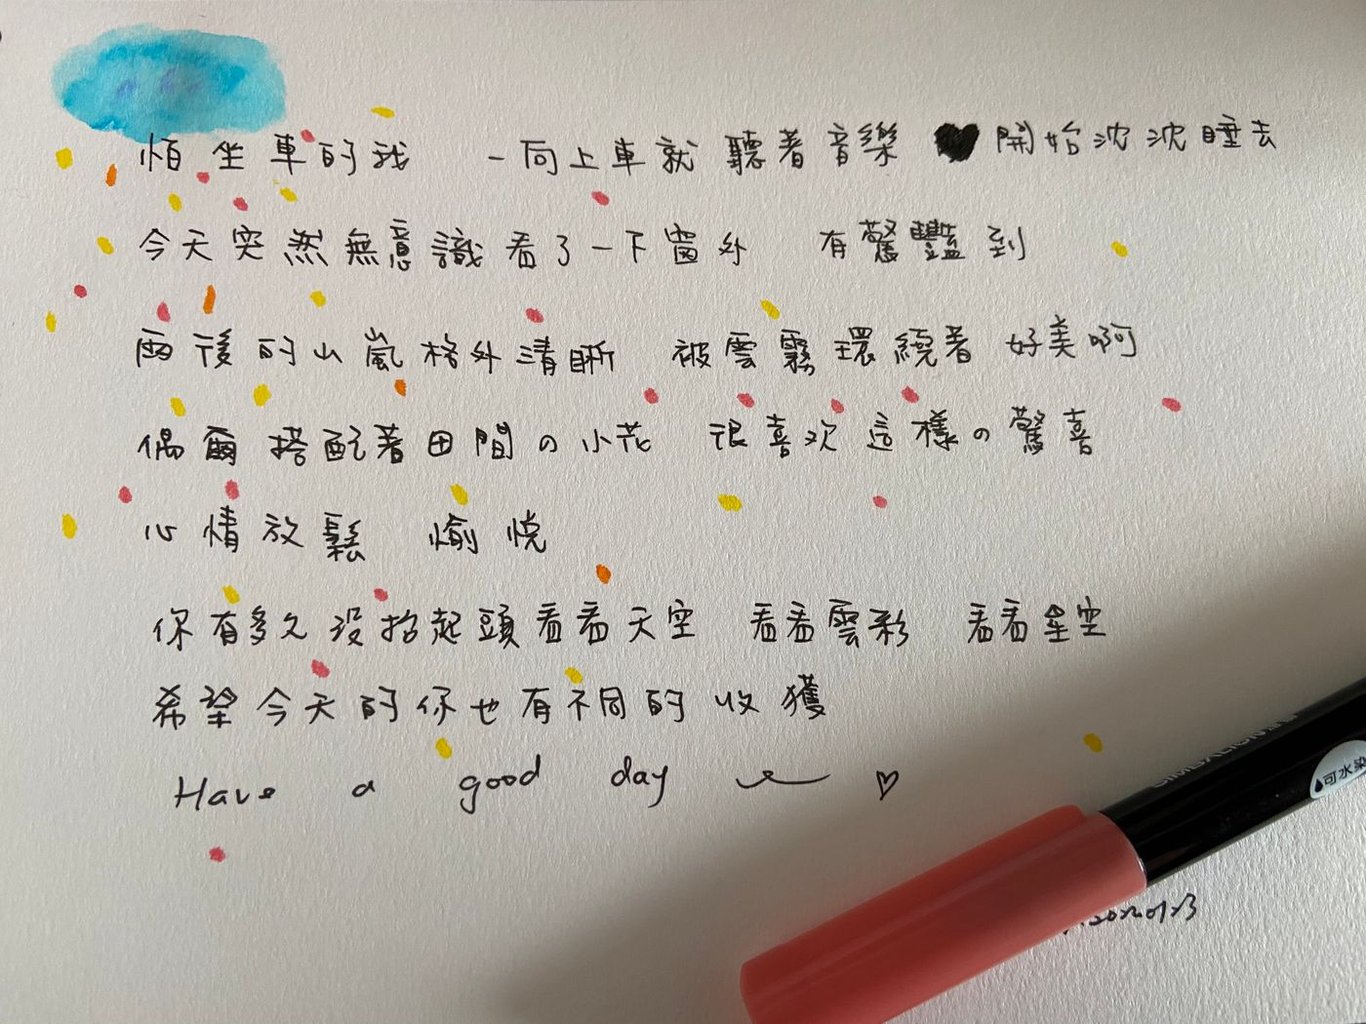 怕坐車的我 一向上車就聽著音樂 ♥ 開始沈沈睡去
今天突然無意識看了一下窗外 有驚豔到
雨後的山嵐格外清晰 被雲霧環繞著 好美啊
偶爾搭配著田間の小花 很喜欢這樣の驚喜
心情放鬆 愉悅
你有多久沒抬起頭看看天空 看看雲彩 看看星空
希望今天的你也有不同的收獲
Have a good day ♡
可水染